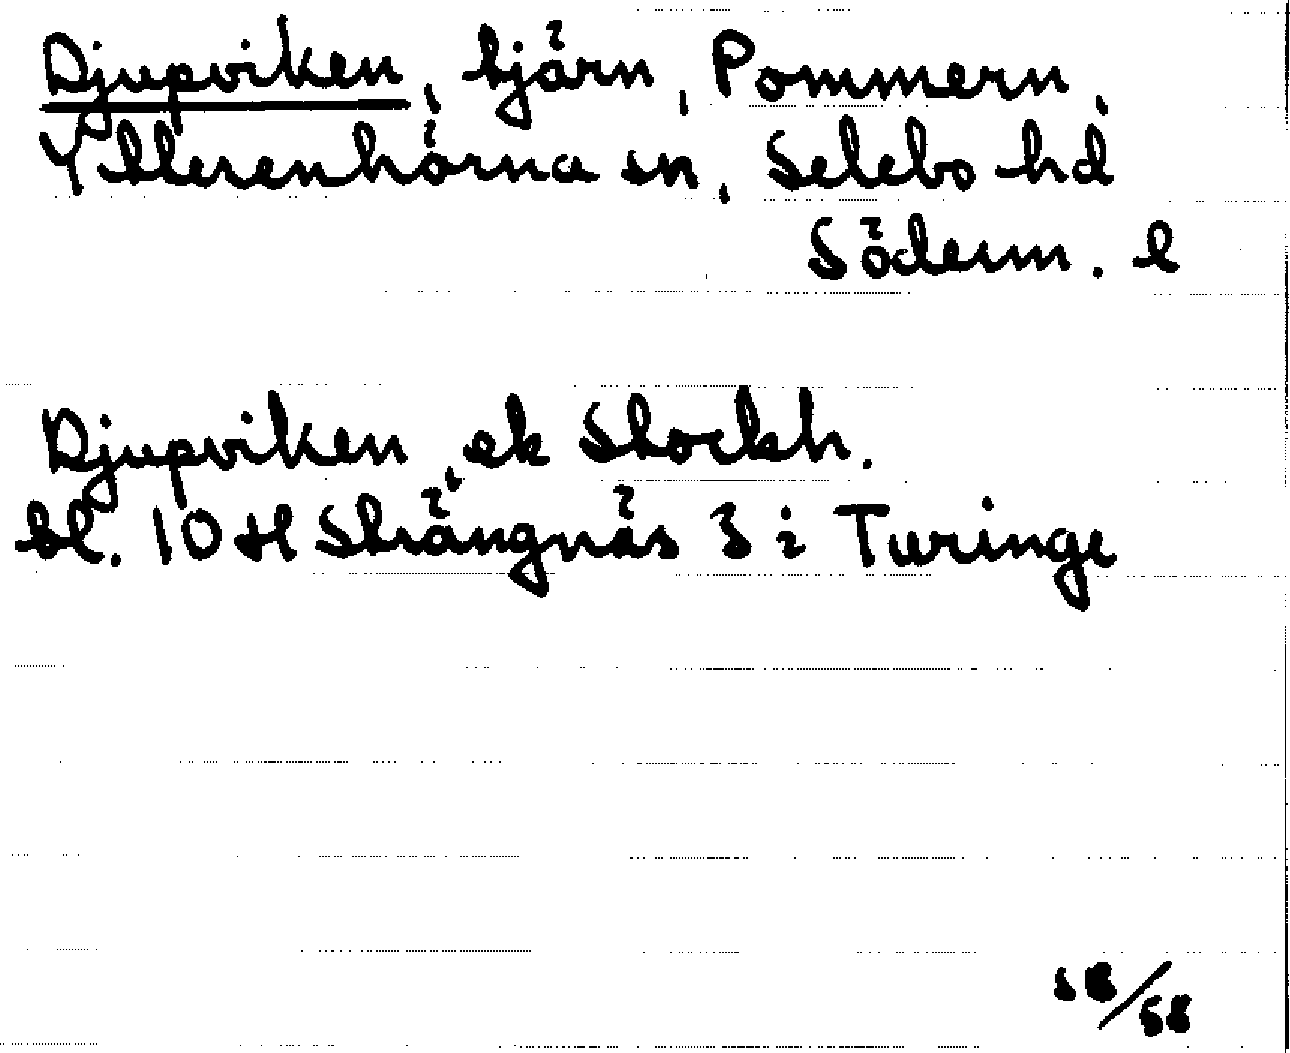 Djupviken, tjärn, Pommern,
Ytterenhörna sn, Selebo hd
Söderm. l
Djupviken, ek Stockh.
bl. 10H Strängnäs 3 i Turinge